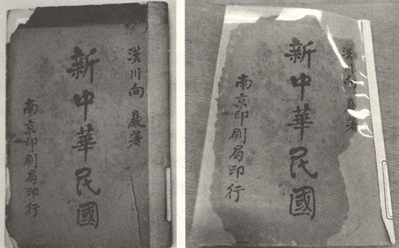 漢川向巖著
新中華民國
南京印刷局印行
漢川向巖著
新中華民國
南京印刷局印行